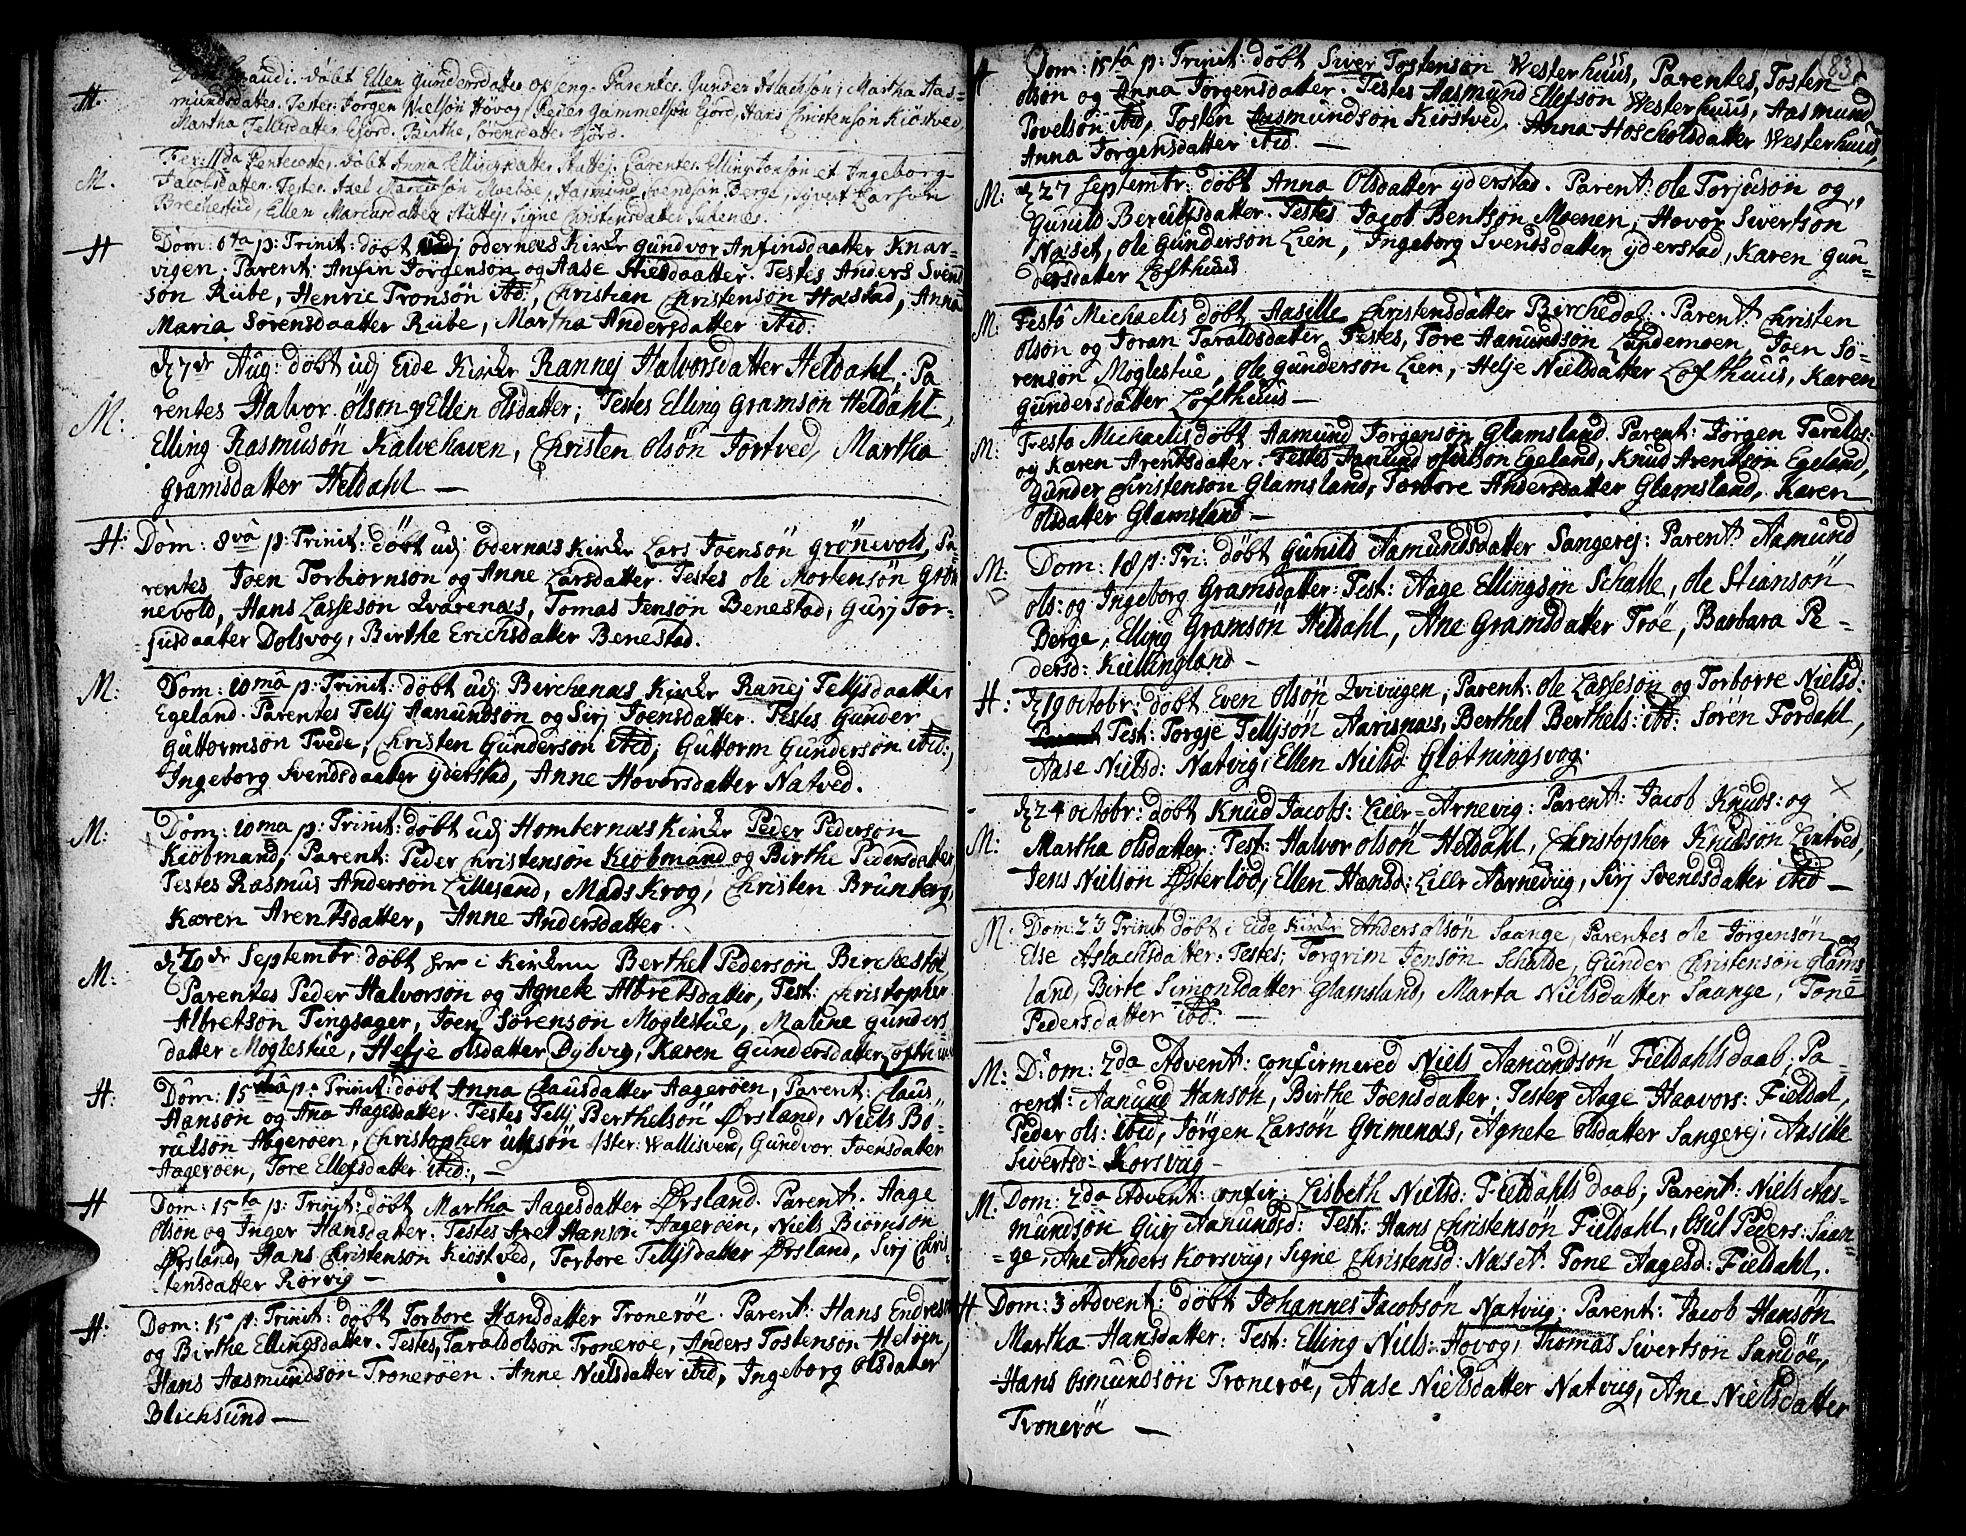 H. Dom: Exaudi. döbt Ellen Gundersdatter Opseng. Parentes. Gunder Aslachsön, Martha Aas-
mundsdatter. Testes. Jörgen Nielsön Høvog, Peder Gammelsön Ejord, Hans Christensön Kiöstved,
Martha Tellefsdatter Ejord. Birthe Sörensdatter Ejord.
M. Fer: IIda Pentecostes. döbt Anna Ellingsdatter Stuttej. Parentes. Elling Jonsön et Ingeborg
Jacobsdatter. Testes. Axel Marcusön Moeböe, Aasmund Svendsön Berge, Syvert Larsön
Brechestad, Ellen Marcusdatter Stuttej, Signe Christensdatter
H Dom: 6ta p: Trinit: döbt udj Odernæs Kirke Gundvor Anfinsdaatter Knar-
vigen. Parent: Anfin Jörgensön og Aase Stiesdaatter. Testes Anders Svend
sön Rübe, Henric Tronsön ibid:, Christian Christensön Hæstad, Anna
Maria Sörensdaatter Rübe, Martha Andersdatter ibid:
M: d 7de Aug: döbt udj Eide Kirke Rannej Halvorsdatter Heldahl, Pa
rentes Halvor Olsön og Ellen Olsdatter; Testes Elling Gramsön Heldahl,
Elling Rasmusön Kalvehaven, Christen Olsön Tortved, Martha
Gramsdatter Heldahl —
H: Dom: 8va p: Trinit: döbt udj Odernæs Kirke Lars Joensön Grönevold, Pa-
rentes Joen Torbiornsön og Anne Larsdatter. Testes Ole Mortensön Grön
nevold, Hans Lassesön Qvarenæs, Tomas Jensön Benestad, Gurj Tor-
jusdaatter Dolsvog, Birthe Erichsdatter Benestad.
M: Dom: 10ma p: Trinit: döbt udj Birchenæs Kirke Ranej Tellefsdaatter
Egeland. Parentes Tellf Aanundsön og Sirj Joensdatter. Testes Gunder
Guttormsön Tvede, Christen Gundersön ibid, Guttorm Gundersön ibid:,
Ingeborg Svendsdaatter Yderstad, Anne Hovorsdatter Natved.
M: Dom: 10ma p: Trinit: döbt udj Hombernæs Kirke Peder Pedersön
Kiöbmand, Parent: Peder Christensön Kiöbmand og Birthe Pedersdatter,
Testes Rasmus Andersön Lillesand, Mads Krog, Christen Brunberg,
Karen Arentsdatter, Anne Andersdatter.
M: d 20de Septembr: döbt her i Kirken Berthel Pedersön Birchestöl
Parentes Peder Halvorsön og Agnete Albretsdatter, Test: Christopher
Albretsön Tingsager, Joen Sörensön Moglestue, Malene Gunders
datter Moglestue, Helje Olsdatter Dylvig, Karen Gundersdatter Lofthuus
H: Dom: 15ma p: Trinit: döbt Anna Clausdatter Aageröen, Parent: Claus
Hansön og Ana Aagesdatter. Testes Tellf Berthelsön Ørsland, Niels Bö-
rulsön Aageröen, Christopher Wallisven, Gundvor Joensdatter
Aageröen, Tore Ellefsdatter ibid:, —
H Dom: 15ta p: Trinit: döbt Martha Aagesdatter Ørsland. Parent. Aage
Olsön og Inger Hansdatter: Testes Axel Hansön Aageröen, Niels Biörnsön
Ørsland, Hans Christensön Kiöstved, Torbore Tellefsdatter Ørsland, Sirj Chris
tensdatter Rorvig —
H: Dom: 15 p: Trinit: döbt Torbore Hansdatter Troneröe. Parent: Hans Endresen
og Birthe Ellingsdatter. Testes, Tarald Olsön Troneröe, Anders Tostensön Helvgen,
Hans Aasmundsön Troneröen. Anne Nielsdatter ibid, Ingeborg Olsdatter
Blichsund —
83
H Dom: 15ta p: Trinit: döbt Siver Tostensön Westerhuus, Parentes, Tosten
Olsön og Anna Jörgensdatter. Testes Aasmund Ellefsön Westerhuus, Aasmund
Povelsön ibid, Tosten Aasmundsön Kiöstved, Anna Hoscholsdatter Westerhuus,
Anna Jörgensdatter ibid. —
M: d 27 Septembr: döbt Anna Olsdatter Yderstad. Parent: Ole Torjusön og
Gunild Berulfsdatter. Testes Jacob Bentsön Moenen, Hovor Sivertsön
Næset, Ole Gundersön Lien, Ingeborg Svendsdatter Yderstad, Karen Gun-
dersdatter Lofthuus
M: Festo Michaelis döbt Aasille Christensdatter Birchedal. Parent: Christen
Olsön og Joran Taraldsdatter, Testes, Tore Aanundsön Landemoen, Joen Sö-
rensön Moglestue, Ole Gundersön Lien, Helje Nielsdatter Lofthuus, Karen
Gundersdatter Lofthuus —
M: Festo Michaelis döbt Aamund Jorgensön Glamsland. Parent: Jörgen Taralds:
og Karen Arentsdatter. Testes Aanund Egeland, Knud Arentsön Egeland,
Gunder Christensön Glamsland, Torbore Andersdatter Glamsland, Karen
Olsdatter Glamsland —
M: Dom: 18 p: Tri: döbt Gunild Aamundsdatter Sangerej: Parent: Aamund
Ols: og Ingeborg Gramsdatter: Test: Aage Ellingsön Schalle, Ole Stiansön
Berge, Elling Gramsön Heldahl, Ane Gramsdatter Tröe, Barbara Pe-
dersd: Kiellingland —
H: d 19 Octobr: döbt Even Olsön Qvivigen, Parent: Ole Lassesön og Torborre Nielsd:
Test: Torgje Tellfsön Aarisnæs, Berthel Berthels: ibid: Sören Fordahl,
Aase Nielsd: Natvig, Ellen Nielsd: Glötningsvog.
M: d 24 Octobr: döbt Knud Jacobs: Lille-Arnevig: Parent: Jacob Knuds: og
Martha Olsdatter: Test: Halvor Olsön Heldahl, Christopher Knudsön Lintved,
Jens Nielsön Østerlöd, Ellen Hansd: Lille Aarnevig, Sirj Svendsdatter ibid —
M: Dom: 23 Trinit döbt i Eide Kirke Anders Olsön Saange, Parentes Ole Jörgensön og
Else Aslachsdatter: Testes; Torgrim Jensön Schalde, Gunder Christensön Glams
land, Birte Simonsdatter Glamsland, Marta Nielsdatter Saange, Tone
Pedersdatter ibd: —
M: Dom: 2da Advent: confirmered Niels Aanundsön Fieldahls daab; Pa-
rent: Aanund Hansön, Birthe Joensdatter, Testes Aage Haavors: Fieldal,
Peder Ols: ibid, Jörgen Larsön Grimenæs, Agnete Olsdatter Sangerej, Aasille
Sivertsd: Korsvig —
M: Dom: 2da Advent: confir: Lisbeth Nielsd: Fieldahls daab; Parent: Niels Aas-
mundsön Gurj Aanundsd: Test: Hans Christensön Fieldahl, Osul Peders: Saan-
-ge, Ane Anders Korsvig, Signe Christensd: Næset. Tone Aagesd: Fieldahl.
H Dom: 3 Advent: döbt Johannes Jacobsön Natvig: Parent: Jacob Hansön
Martha Hansdatter: Test: Elling Niels: Hovog, Thomas Sivertsön Sandöe,
Hans Osmundsön Troneröe, Aase Nielsdatter Natvig, Ane Nielsdatter
Troneröe —